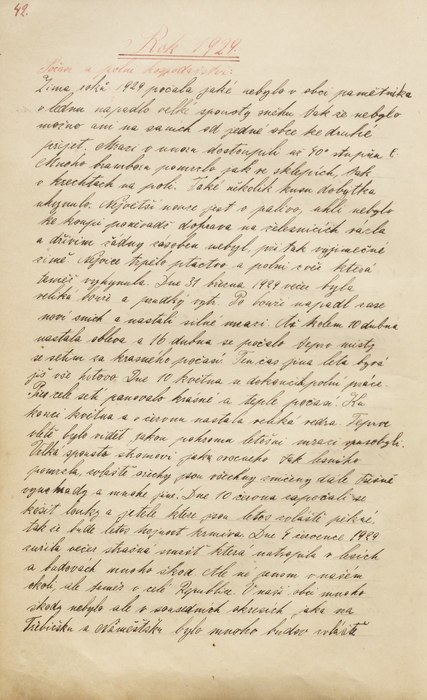 42.
Rok 1929.
Počasí a polní hospodářství.
Zima roků 1929 počala jaké nebylo v obci pamětníka
v lednu napadlo velké spousty sněhu tak že nebylo
možno ani na saních od jedné obce ke druhé
přijet. Mrazi v únoru dostoupili až 40° stupňu C.
Mnoho bramborů pomrzlo jak ve sklepích, tak
v krechtech na poli. Také několik kusů dobytka
uhynulo. Největší nouze jest o palivo, uhlí nebylo
ke koupi poněvadž doprava na železnicích vázla
a dřívím žádný zásoben nebyl, při tak vyjímečné
zimě. Nejvíce trpělo ptactvo a polní zvěř která
téměř vyhynula. Dne 31 března 1929 večer byla
veliká bouře a prudký vítr. Po bouře napadl zase
nový sníh a nastali silné mrazi. Až kolem 10 dubna
nastala obleva a 16 dubna se počalo teprv místy
se setím za krásného počasí. Ten čas jiná léta bývá
již vše hotovo. Dne 10 května se dokončily polní práce.
Přes celé setí panovalo krásné a teplé počasí. Ku
konci května a v červnu nastala veliká vedra. Teprve
v létě bylo vidět jakou pohromu letošní mrazi spůsobyli.
Velká spousta stromoví jako ovocného tak lesního
pomrzla, zvláště ořechy jsou všechny zničeny dále
a mnohé jiné. Dne 10 června započali se
kosit louky a jetele které jsou letos zvlášti pěkné,
tak že bude letos hojnost krmiva. Dne 4 července 1929
zuřila večer strašná smršť která natropila v lesích
a budovách mnoho škod. Ale ne jenom v našem
okolí, ale téměř v celé Republice. V naší obci mnoho
škody nebylo ale v sousedních okresích jako na
Třebíčsku a Náměšťsku bylo mnoho budov zvláště